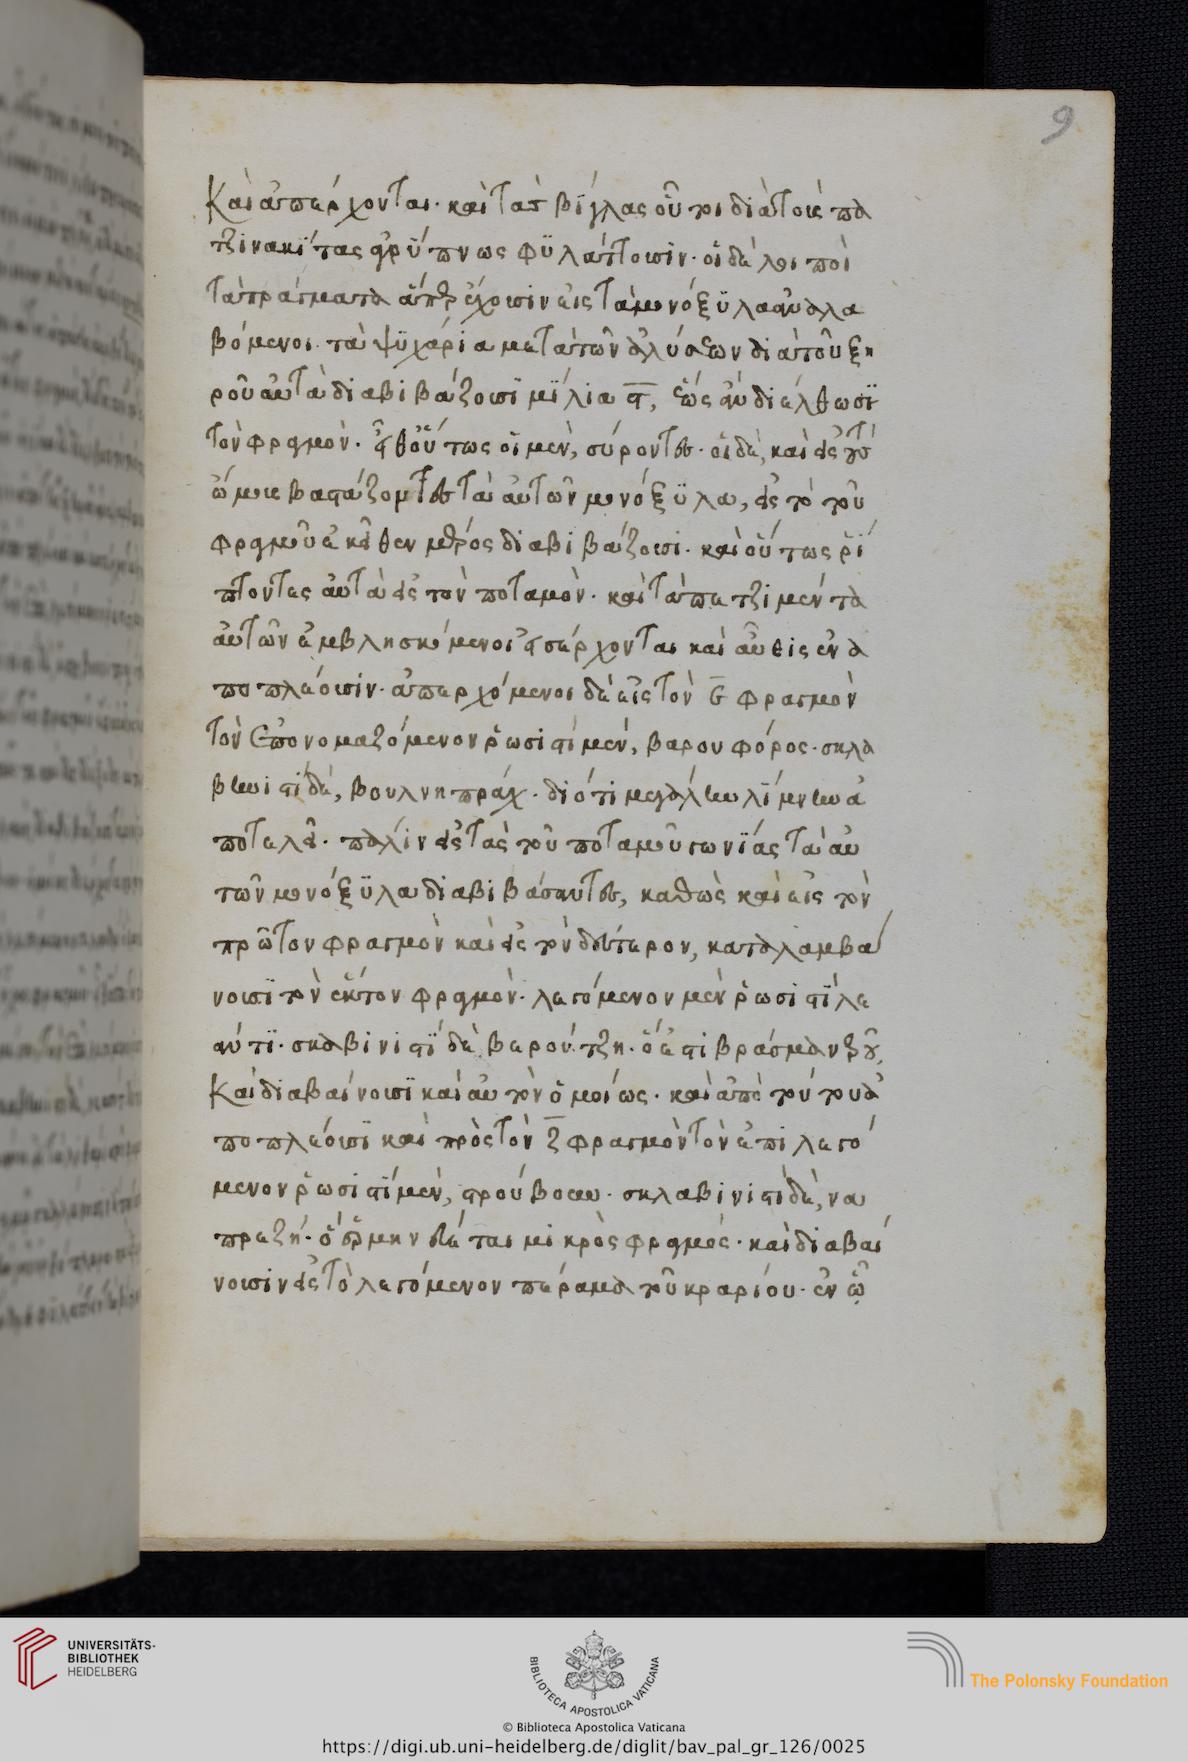 9
Καὶ ἀπέρχονται· καὶ τὰς βίγλας οὗτοι διὰ τοὺς πα
τζινακΐτας ἀγρύπνως φϋλάττουσιν· οἱ δὲ λοιποὶ
τὰ πράγματα ἅπερ ἔχουσιν εἰς τὰ μονόξϋλα ἀναλα
βόμενοι τὰ ψϋχάρια μετὰ τῶν ἁλύσεων διὰ τοῦ ξη
ροῦ αὐτὰ διαβιβάζουσϊ μΐλια ϛ, ἕως ἂν διέλθωσϊ
τὸν φραγμόν· εἶθ' οὕτως οἱ μὲν, σύροντες· οἱ δὲ, καὶ εἰς τοὺς
ὤμους βαστάζοντες τὰ αὐτῶν μονόξϋλα, εἰς τὸ τοῦ
φραγμοῦ ἐκεῖθεν μέρος διαβιβάζουσι· καὶ οὕτως ῥί
πτοντες αὐτὰ εἰς τὸν ποταμὸν· καὶ τὰ πετζιμέντα
αὐτῶν ἐμβλησκόμενοι εἰσέρχονται καὶ αὖθις ἐνα
ποπλέουσιν· ἀπερχόμενοι δὲ εἰς τὸν ε̄ φραγμὸν
τὸν ἐπονομαζόμενον ῥωσιστὶ μέν, βαρουφόρος· σκλα
βηνιστὶ δὲ, βουλνηπράχ· διότι μεγάλην λίμνην ἀ
ποτελεῖ· πάλιν εἰς τὰς τοῦ ποταμοῦ γωνΐας τὰ αὐ
τῶν μονόξϋλα διαβιβάσαντες, καθὼς καὶ εἰς τὸν
πρῶτον φραγμὸν καὶ εἰς τὸν δεύτερον, καταλαμβά
νουσϊ τὸν ἕκτον φραγμὸν· λεγόμενον μὲν ῥωσιστὶ λε
άντϊ· σκλαβινιστὶ δὲ βερούτζη· ὅ ἐστι βράσμα νεροῦ,
Καὶ διαβαίνουσϊ καὶ αὐτὸν ὁμοίως· καὶ ἀπὸ τούτου ἀ
ποπλέουσϊ καὶ πρὸς τὸν ζ̄ φραγμὸν τὸν ἐπιλεγό
μενον ῥωσιστὶ μὲν, στρούβουν· σκλαβινιστὶ δὲ, να
πρεζή· ὃ ἑρμηνεύεται μικρὸς φραγμός· καὶ διαβαί
νουσιν εἰς τὸ λεγόμενον πέραμα τοῦ κραρίου· ἐν ᾧ
UNIVERSITÄTS-
BIBLIOTHEK
HEIDELBERG
BIBLIOTECA APOSTOLICA VATICANA
The Polonsky Foundation
© Biblioteca Apostolica Vaticana
https://digi.ub.uni-heidelberg.de/diglit/bav_pal_gr_126/0025